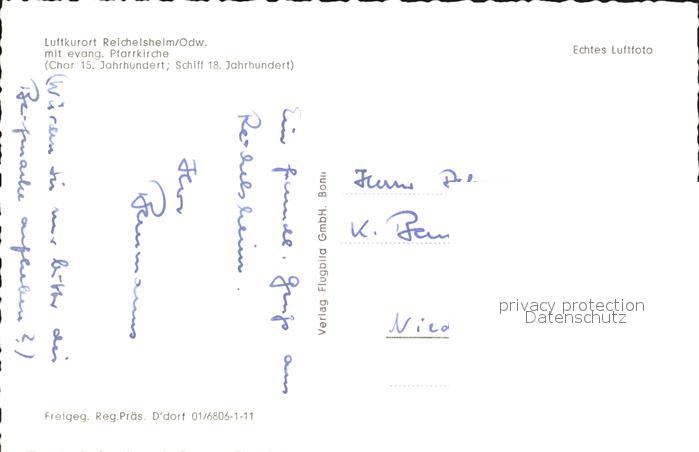 Luftkurort Reichelsheim/Odw.
mit evang. Pfarrkirche
(Chor 15. Jahrhundert; Schiff 18. Jahrhundert)
Echtes Luftfoto
Ein freundl. Gruß aus
Reichelsheim.
Ihre
(Wären Sie mir bitte die
aufheben ?)
Verlag Flugbild GmbH. Bonn
Herrn
K.
privacy protection
Datenschutz
Freigeg. Reg.Präs. D'dorf 01/6806-1-11